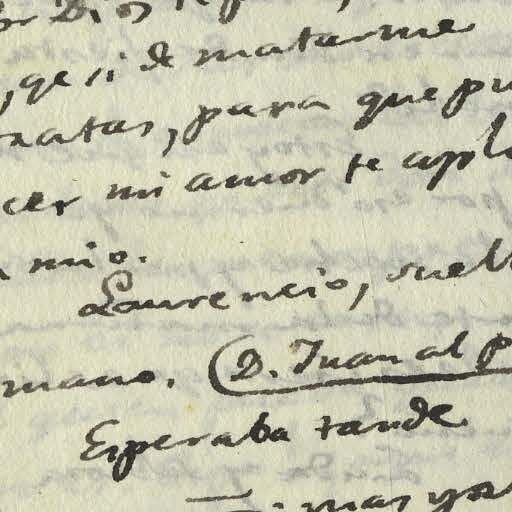 or Dios
, qe si de matarme
matas, para que pu
cer mi amor te apla
mio.
Laurencio, suelt
mano. (D. Juan al p
Esperaba tarde
mas yo